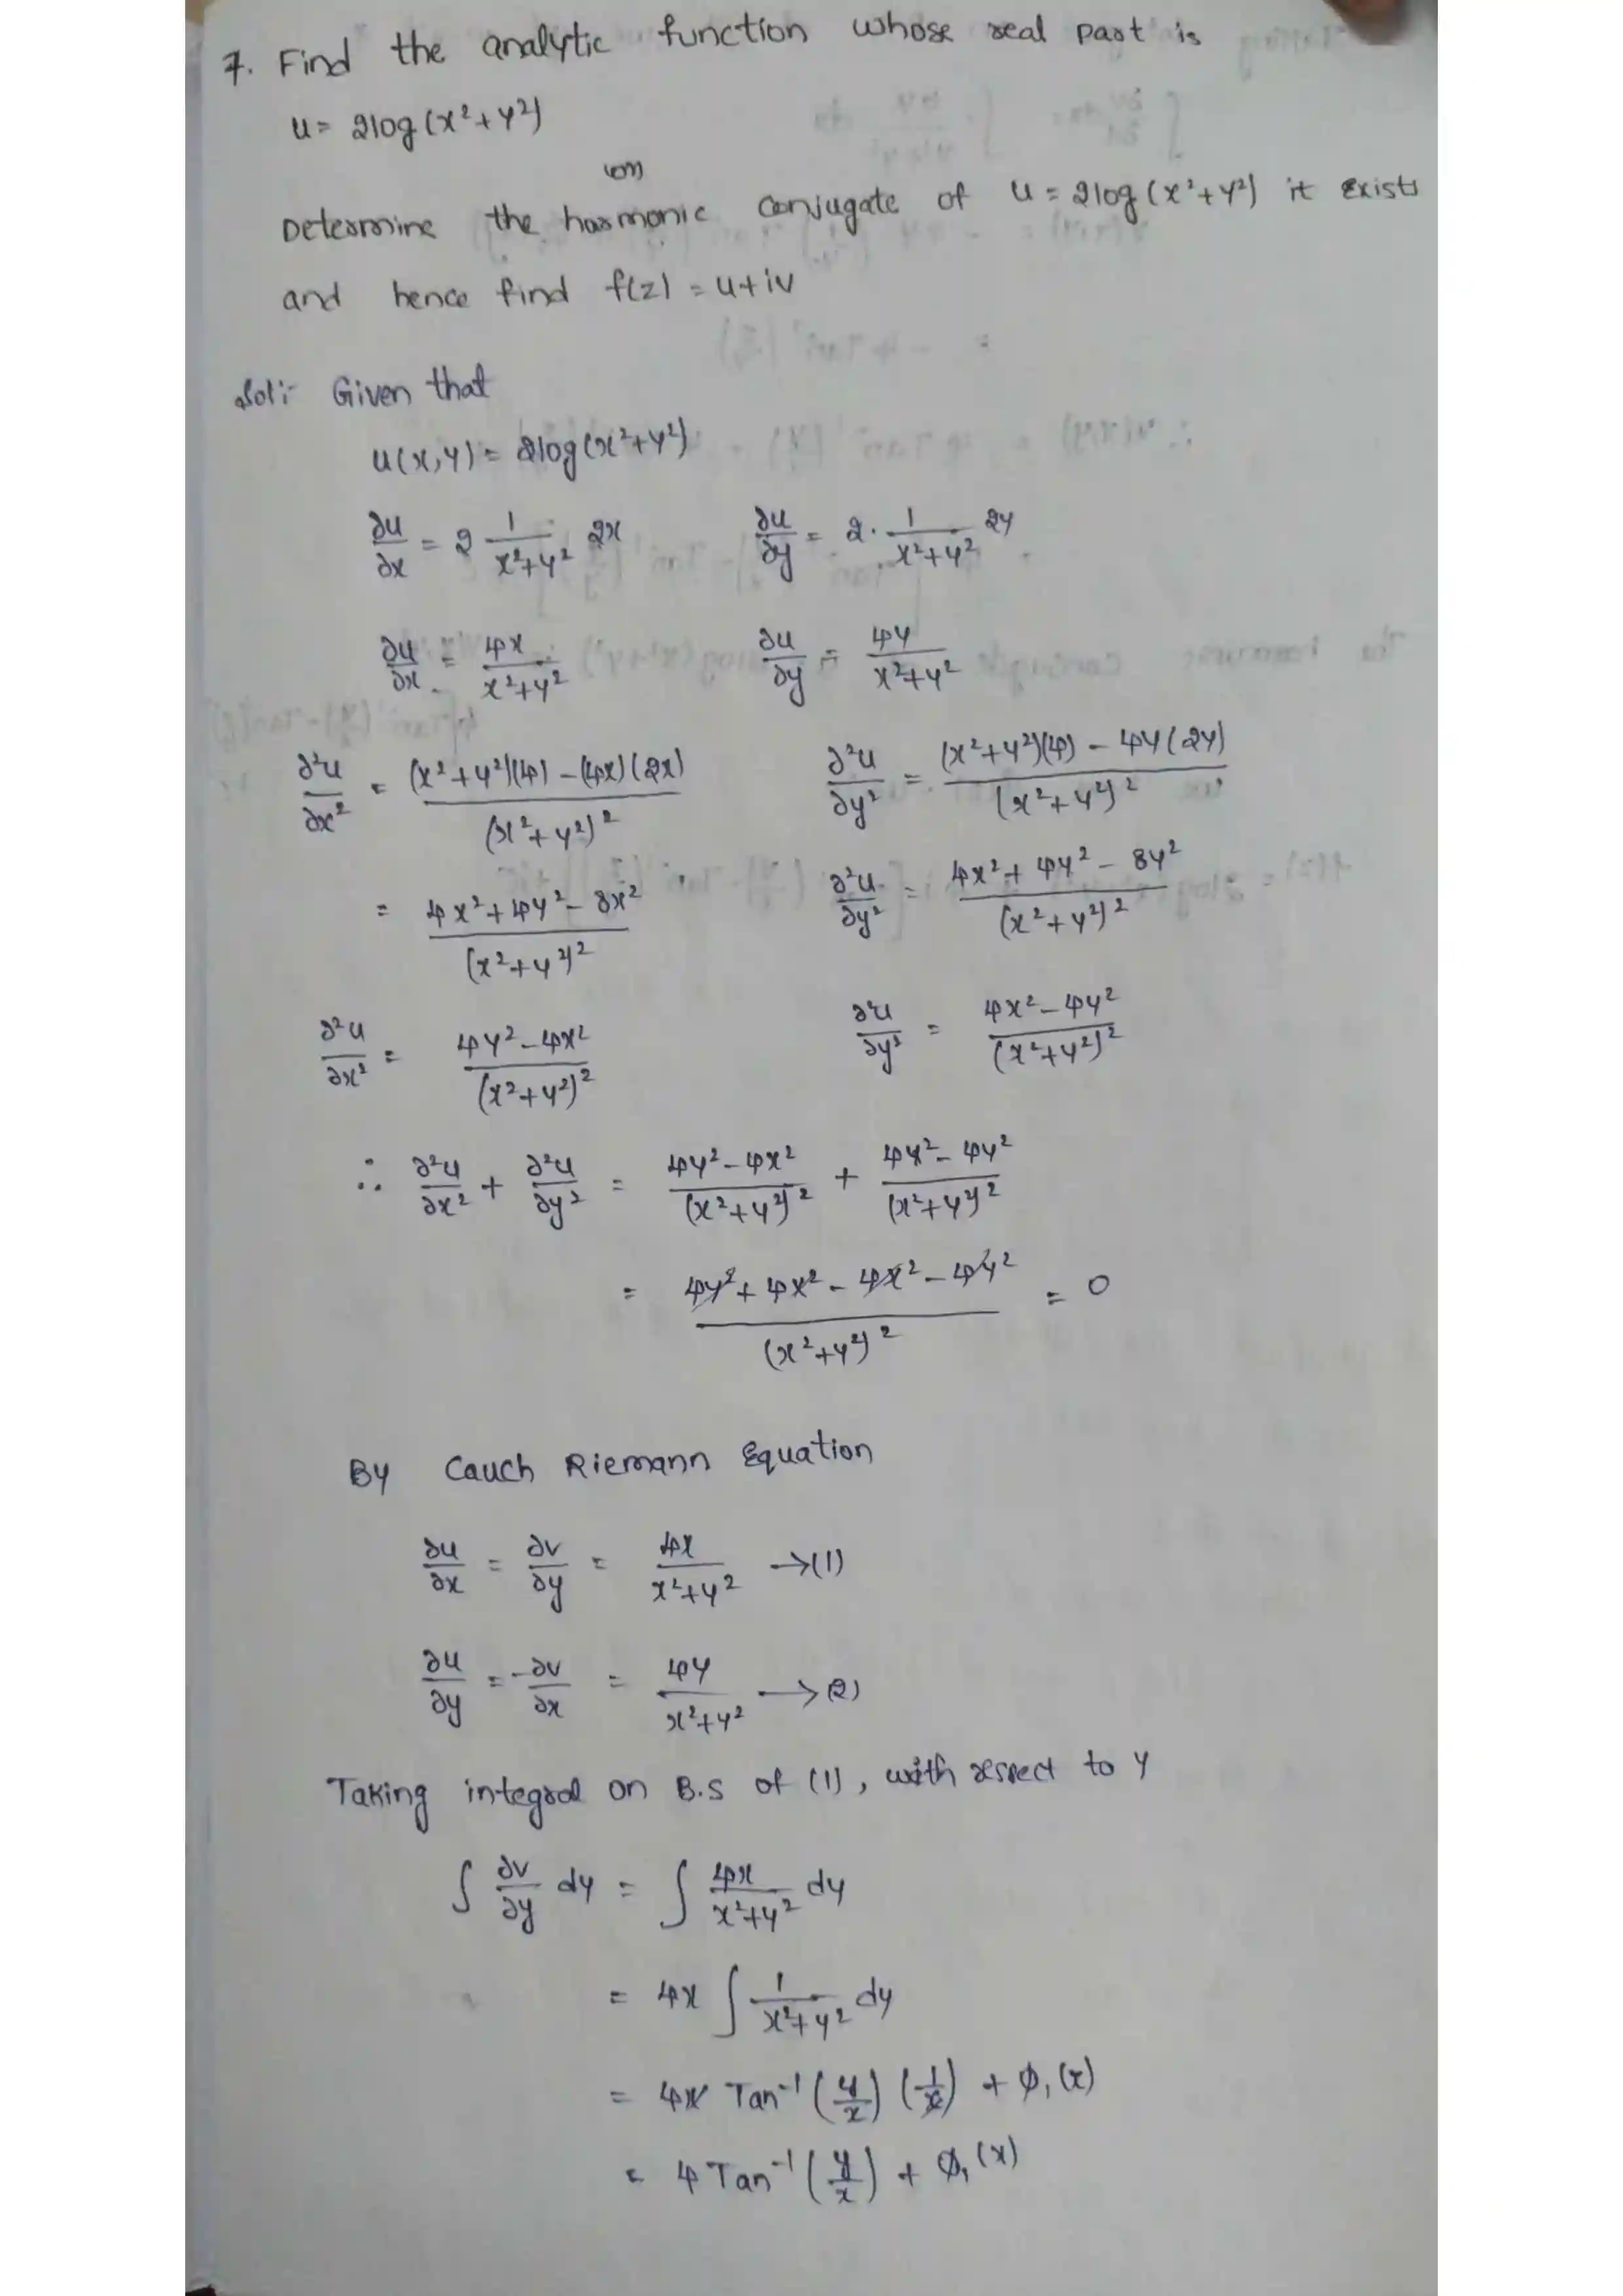 7. Find the analytic function whose real part is
u = 2log(x²+y²)
(or)
Determine the harmonic conjugate of u = 2log(x²+y²) it exists
and hence find f(z) = u+iv
Sol:- Given that
u(x,y) = 2log(x²+y²)
∂u/∂x = 2 1/(x²+y²) 2x    ∂u/∂y = 2. 1/(x²+y²) 2y
∂u/∂x = 4x/(x²+y²)    ∂u/∂y = 4y/(x²+y²)
∂²u/∂x² = ((x²+y²)(4) - (4x)(2x))/(x²+y²)²    ∂²u/∂y² = ((x²+y²)(4) - 4y(2y))/(x²+y²)²
= (4x²+4y²-8x²)/(x²+y²)²    ∂²u/∂y² = (4x²+4y²-8y²)/(x²+y²)²
∂²u/∂x² = (4y²-4x²)/(x²+y²)²    ∂²u/∂y² = (4x²-4y²)/(x²+y²)²
∴ ∂²u/∂x² + ∂²u/∂y² = (4y²-4x²)/(x²+y²)² + (4x²-4y²)/(x²+y²)²
= (4y²+4x²-4x²-4y²)/(x²+y²)² = 0
By Cauch Riemann Equation
∂u/∂x = ∂v/∂y = 4x/(x²+y²) →(1)
∂u/∂y = -∂v/∂x = 4y/(x²+y²) →(2)
Taking integral on B.S of (1), with respect to y
∫ ∂v/∂y dy = ∫ 4x/(x²+y²) dy
= 4x ∫ 1/(x²+y²) dy
= 4x Tan⁻¹(y/x) (1/x) + ∅₁(x)
= 4 Tan⁻¹(y/x) + ∅₁(x)